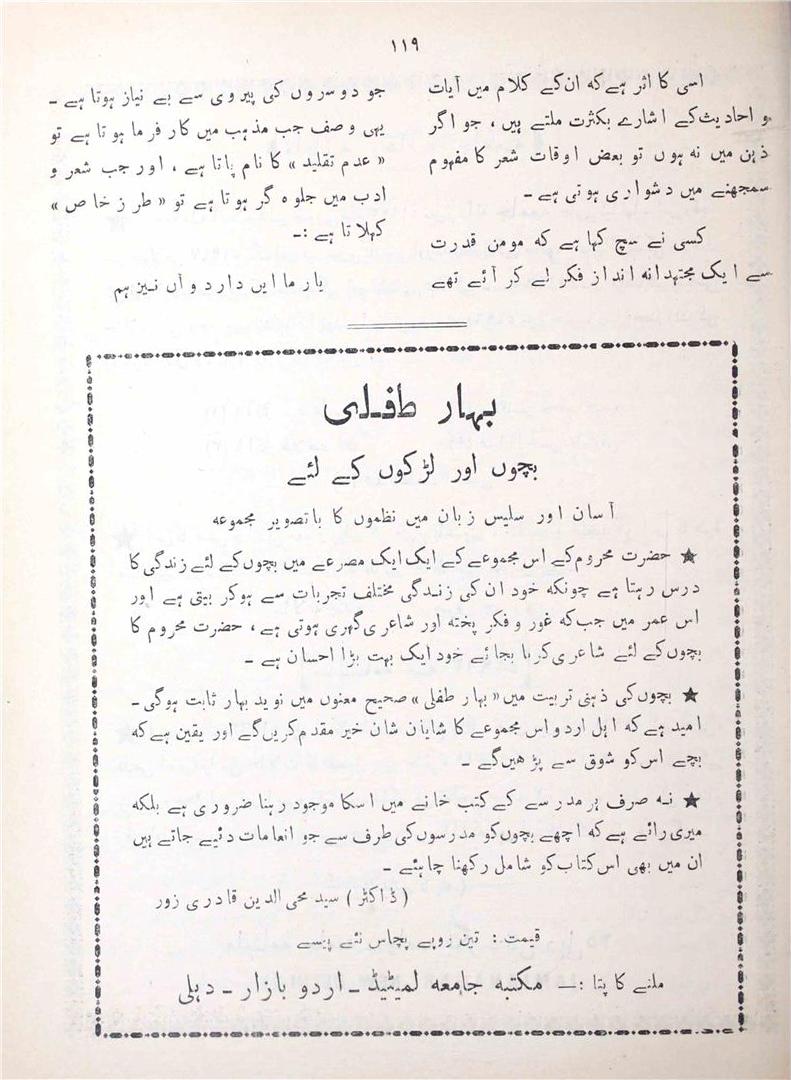 ۱۱۹
اسی کا اثر ہے کہ ان کے کلام میں آیات
و احادیث کے اشارے بکثرت ملتے ہیں ، جو اگر
ذہن میں نہ ہوں تو بعض اوقات شعر کا مفہوم
سمجھنے میں دشواری ہوتی ہے ۔
کسی نے سچ کہا ہے کہ مومن قدرت
سے ایک مجتہدانہ انداز فکر لے کر آئے تھے
جو دوسروں کی پیروی سے بے نیاز ہوتا ہے ۔
یہی وصف جب مذہب میں کارفرما ہوتا ہے تو
« عدم تقلید » کا نام پاتا ہے ، اور جب شعر و
ادب میں جلوہ گر ہوتا ہے تو « طرز خاص »
کہلاتا ہے :۔
یار ما ایں دارد و آں نیز ہم
بہار طفلی
بچوں اور لڑکوں کے لئے
آسان اور سلیس زبان میں نظموں کا باتصویر مجموعہ
★ حضرت محروم کے اس مجموعے کے ایک ایک مصرعے میں بچوں کے لئے زندگی کا
درس رہتا ہے چونکہ خود ان کی زندگی مختلف تجربات سے ہوکر بیتی ہے اور
اس عمر میں جب کہ غور و فکر پختہ اور شاعری گہری ہوتی ہے ، حضرت محروم کا
بچوں کے لئے شاعری کرنا بجائے خود ایک بہت بڑا احسان ہے ۔
★ بچوں کی ذہنی تربیت میں « بہار طفلی » صحیح معنوں میں نوید بہار ثابت ہوگی ۔
امید ہے کہ اہل اردو اس مجموعے کا شایان شان خیر مقدم کریں گے اور یقین ہے کہ
بچے اس کو شوق سے پڑھیں گے ۔
★ نہ صرف ہر مدرسے کے کتب خانے میں اسکا موجود رہنا ضروری ہے بلکہ
میری رائے ہے کہ اچھے بچوں کو مدرسوں کی طرف سے جو انعامات دئیے جاتے ہیں
ان میں بھی اس کتاب کو شامل رکھنا چاہئے ۔
( ڈاکٹر ) سید محی الدین قادری زور
قیمت : تین روپے پچاس نئے پیسے
ملنے کا پتا :— مکتبہ جامعہ لمیٹیڈ ۔ اردو بازار ۔ دہلی